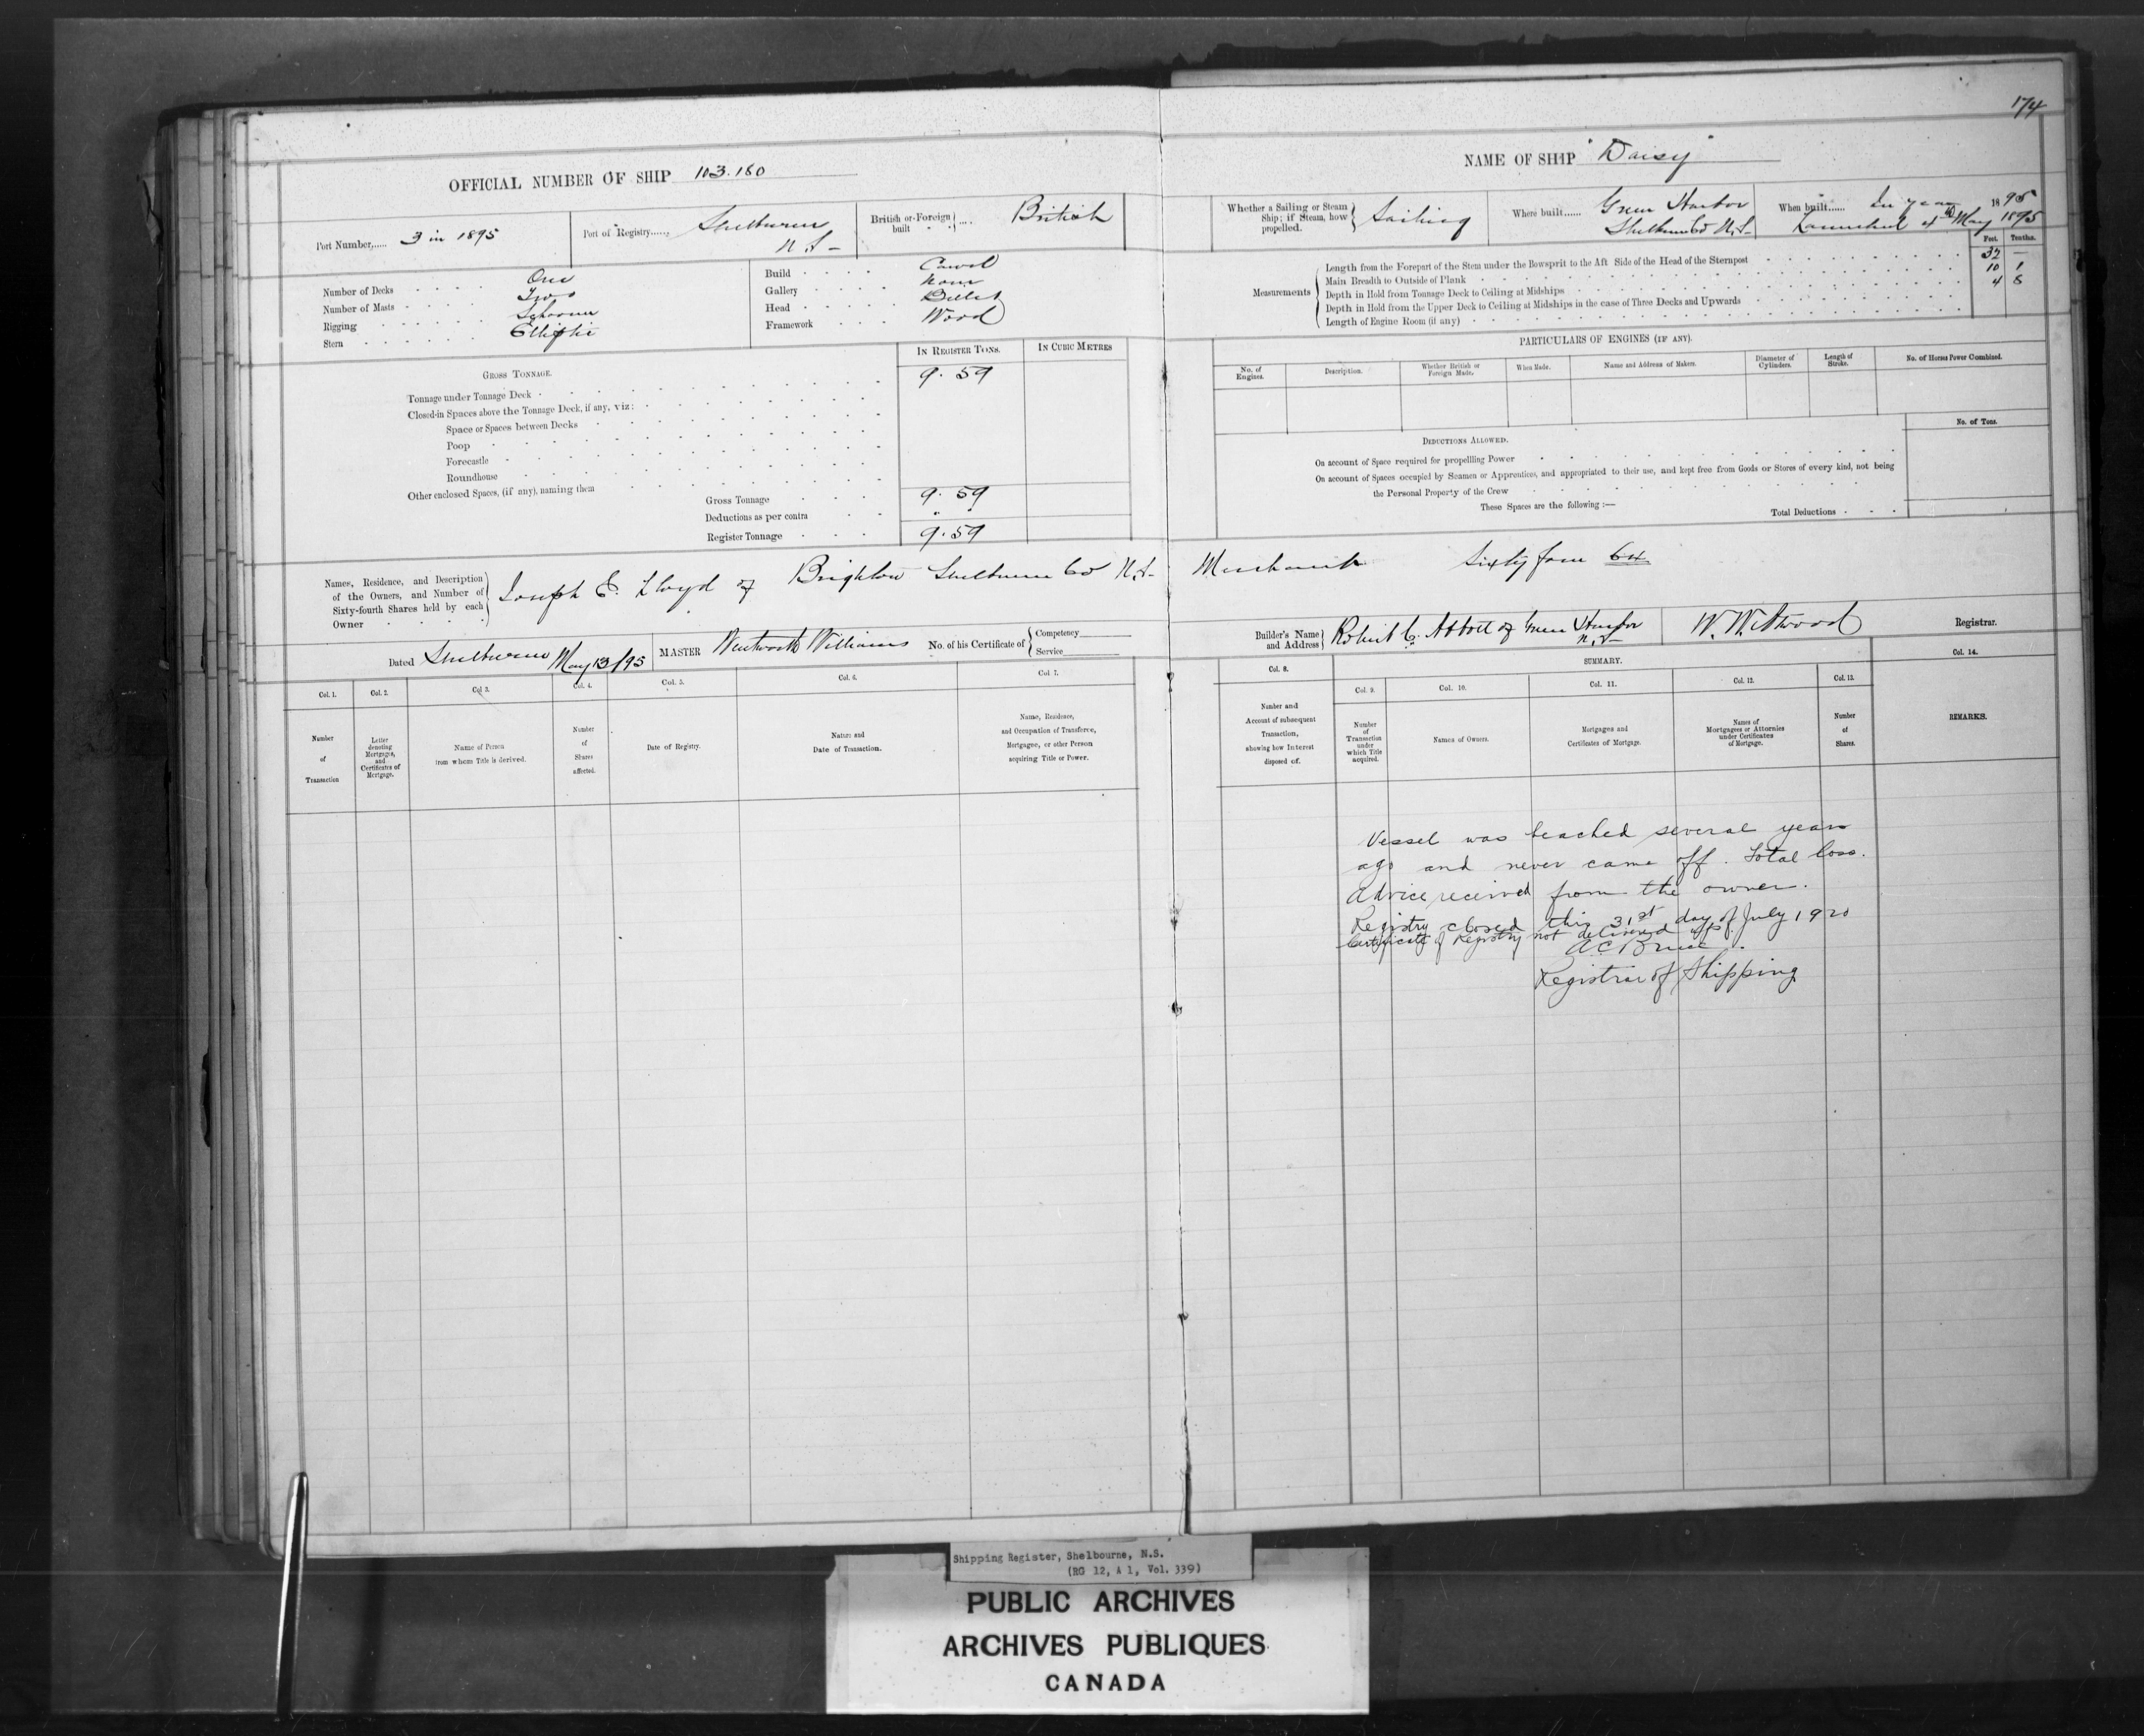 174
OFFICIAL NUMBER OF SHIP 103.180
NAME OF SHIP "Daisy"
Port Number,..... 3 in 1895
Port of Registry...... Shelburne N.S-
British or Foreign built .... British
Whether a Sailing or Steam Ship; if Steam, how propelled. Sailing
Where built...... Green Harbor Shelburne Co N.S-
When built...... In year 1895
Launched 4th May 1895
Number of Decks One
Number of Masts Two
Rigging Schooner
Stern Elliptic
Build Carvel
Gallery None
Head Billet
Framework Wood
Measurements
Feet. Tenths.
Length from the Forepart of the Stem under the Bowsprit to the Aft Side of the Head of the Sternpost 32 —
Main Breadth to Outside of Plank 10 1
Depth in Hold from Tonnage Deck to Ceiling at Midships 4 8
Depth in Hold from the Upper Deck to Ceiling at Midships in the case of Three Decks and Upwards
Length of Engine Room (if any)
GROSS TONNAGE.
IN REGISTER TONS.
IN CUBIC METRES
Tonnage under Tonnage Deck 9.59
Closed-in Spaces above the Tonnage Deck, if any, viz:
Space or Spaces between Decks
Poop
Forecastle
Roundhouse
Other enclosed Spaces, (if any), naming them
Gross Tonnage 9.59
Deductions as per contra " "
Register Tonnage 9.59
PARTICULARS OF ENGINES (IF ANY).
No. of Engines.
Description.
Whether British or Foreign Made.
When Made.
Name and Address of Makers.
Diameter of Cylinders.
Length of Stroke.
No. of Horses Power Combined.
DEDUCTIONS ALLOWED.
No. of Tons.
On account of Space required for propellling Power
On account of Spaces occupied by Seamen or Apprentices, and appropriated to their use, and kept free from Goods or Stores of every kind, not being
the Personal Property of the Crew
These Spaces are the following :—
Total Deductions
Names, Residence, and Description of the Owners, and Number of Sixty-fourth Shares held by each Owner
Joseph E. Lloyd of Brighton Shelburne Co N.S- Merchant Sixty four 64
Dated Shelburne May 13/95
MASTER Wentworth Williams
No. of his Certificate of Competency Service
Builder's Name and Address Robert C. Abbott of Green Harbor N.S-
W. W. Atwood Registrar.
Col. 1.
Col. 2.
Col 3.
Col. 4.
Col. 5.
Col. 6.
Col 7.
Col. 8.
SUMMARY.
Col. 9.
Col. 10.
Col. 11.
Col. 12.
Col. 13.
Col. 14.
Number of Transaction
Letter denoting Mortgages, and Certificates of Mortgage.
Name of Person from whom Title is derived.
Number of Shares affected.
Date of Registry.
Nature and Date of Transaction.
Name, Residence, and Occupation of Transferee, Mortgagee, or other Person acquiring Title or Power.
Number and Account of subsequent Transaction, showing how Interest disposed of.
Number of Transaction under which Title acquired.
Names of Owners.
Mortgages and Certificates of Mortgage.
Names of Mortgagees or Attornies under Certificates of Mortgage.
Number of Shares.
REMARKS.
Vessel was beached several years
ago and never came off. Total loss.
Advice received from the owner.
Registry closed this 31st day of July 1920
Certificate of Registry not delivered up.
A C Bruce.
Registrar of Shipping
Shipping Register, Shelbourne, N.S.
(RG 12, A 1, Vol. 339)
PUBLIC ARCHIVES
ARCHIVES PUBLIQUES
CANADA